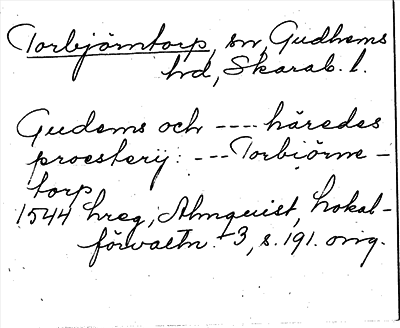 Torbjörntorp, sn, Gudhems
hd, Skarab. l.
Gudems och ---- häredes
proesterij: --- Torbiörne-
torp
1544 hreg, Almquist, Lokal-
förvaltn. 3, s. 191. orig.